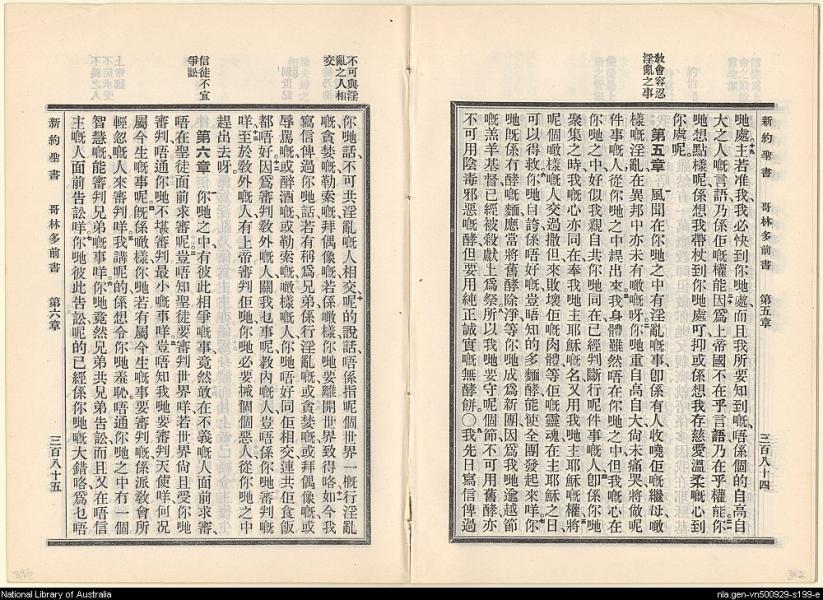 新約聖書 哥林多前書 第五章 三百八十四
哋處、主若准我、我必快到你哋處、而且我所要知到嘅、唔係個的自高自
大之人嘅言語、乃係佢嘅權能、因爲上帝國不在乎言語、乃在乎權能、你
哋想點樣呢、係想我帶杖到你哋處吖、抑或係想我存慈愛溫柔嘅心到
你處呢。
教會容忍
淫亂之事
第五章 風聞在你哋之中有淫亂嘅事、卽係有人收嘵佢嘅繼母、噉
樣嘅淫亂、在異邦中亦未有噉嘅呀、你哋重自高自大、尚未痛哭、將做呢
件事嘅人、從你哋之中趕出來、我身體雖然唔在你哋之中、但我嘅心在
你哋之中、好似我親自共你哋同在、已經判斷行呢件事嘅人、卽係你哋
聚集之時、我嘅心亦同在、奉我哋主耶穌嘅名、又用我哋主耶穌嘅權、將
呢個噉樣嘅人、交過撒但、來敗壞佢嘅肉體、等佢嘅靈魂、在主耶穌之日、
可以得救、你哋自誇係唔好嘅、豈唔知的多麵酵、能使全團發起來咩、你
哋旣係有酵嘅麵、應當將舊酵除淨、等你哋成爲新團、因爲我哋逾越節
嘅羔羊基督、已經被殺獻上爲祭、所以我哋要守呢個節、不可用舊酵、亦
不可用陰毒邪惡嘅酵、但要用純正誠實嘅無酵餅〇我先日寫信俾過
不可與淫
亂之人相
交
你哋話、不可共淫亂嘅人相交、呢的說話、唔係指呢個世界一槪行淫亂
嘅、貪婪嘅、勒索嘅、拜偶像嘅、若係噉樣、你哋要離開世界致得咯、如今我
寫信俾過你哋話、若有稱爲兄弟、係行淫亂嘅、或貪婪嘅、或拜偶像嘅、或
辱罵嘅、或醉酒嘅、或勒索嘅、噉樣嘅人、你哋唔好同佢相交、連共佢食飯
都唔好、因爲審判敎外嘅人、關我乜事呢、敎內嘅人、豈唔係你哋審判嘅
咩、至於敎外嘅人、有上帝審判佢、你哋必要搣個個惡人、從你哋之中
趕出去呀。
信徒不宜
爭訟
第六章 你哋之中、有彼此相爭嘅事、竟然敢在不義嘅人面前求審、
唔在聖徒面前求審呢、豈唔知聖徒要審判世界咩、若世界尙且受你哋
審判、唔通你哋不堪審判最小嘅事咩、豈唔知我哋要審判天使咩、何況
屬今生嘅事呢、旣係噉樣、你哋若有屬今生嘅事要審判嘅、係派敎會所
輕忽嘅人來審判咩、我講呢的、係想令你哋羞恥、唔通你哋之中、有一個
智慧嘅、能審判兄弟嘅事咩、你哋竟然兄弟共兄弟告訟、而且又在唔信
主嘅人面前告訟咩、你哋彼此告訟、呢的已經係你哋嘅大錯咯、爲乜唔
新約聖書 哥林多前書 第六章 三百八十五
National Library of Australia
nla.gen-vn500929-s199-e